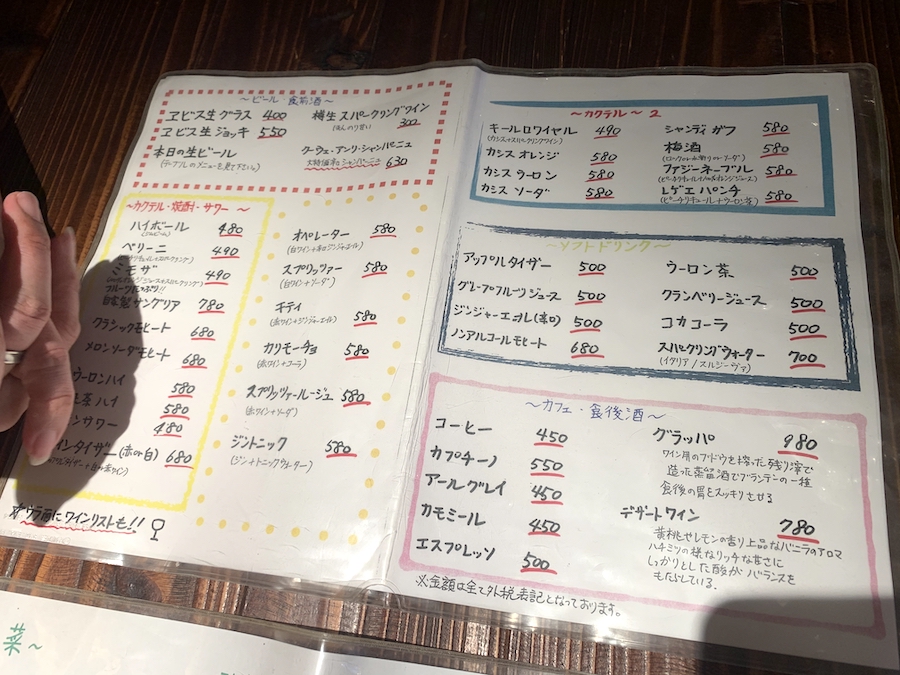 ～ビール・食前酒～
ヱビス生グラス 400
ヱビス生ジョッキ 550
本日の生ビール
(テーブルのメニューを見て下さい)
樽生スパークリングワイン 300
(ほんのり甘い)
クーヴェ・アンリ・シャンパーニュ
大特価辛口シャンパーニュ 630
～カクテル・焼酎・サワー～
ハイボール 480
ベリーニ 490
ミモザ 490
自家製サングリア 780
クラシックモヒート 680
メロンソーダモヒート 680
ウーロンハイ 580
茶ハイ 580
サワー 480
インタイザー(赤or白) 680
オペレーター 580
(白ワイン+辛口ジンジャエール)
スプリッツァー 580
(白ワイン+ソーダ)
キティ 580
(赤ワイン+ジンジャーエール)
カリモーチョ 580
(赤ワイン+コーラ)
スプリッツァールージュ 580
(赤ワイン+ソーダ)
ジントニック 580
(ジン+トニックウォーター)
ウラ面にワインリストも!!
～カクテル～2
キールロワイヤル 490
(カシス+スパークリングワイン)
カシスオレンジ 580
カシスウーロン 580
カシスソーダ 580
シャンディガフ 580
梅酒 580
ファジーネーブル 580
(ピーチリキュール+オレンジジュース)
レゲエパンチ 580
(ピーチリキュール+ウーロン茶)
～ソフトドリンク～
アップルタイザー 500
グレープフルーツジュース 500
ジンジャーエール(辛口) 500
ノンアルコールモヒート 680
ウーロン茶 500
クランベリージュース 500
コカコーラ 500
スパークリングウォーター 700
(イタリア/スルジーヴァ)
～カフェ・食後酒～
コーヒー 450
カプチーノ 550
アールグレイ 450
カモミール 450
エスプレッソ 500
グラッパ 980
ワイン用のブドウを搾った残り滓で
造った蒸留酒でブランデーの一種
食後の胃をスッキリさせる
デザートワイン 780
黄桃やレモンの香り上品なバニラのアロマ
ハチミツの様なリッチな甘さに
しっかりとした酸がバランスを
もたらしている。
※金額は全て外税表記となっております。
菜～